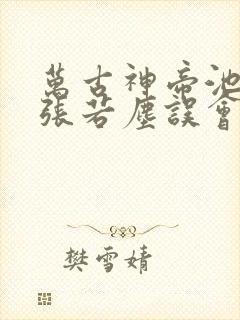 萬古神帝池
張若塵誤會
樊雪婧